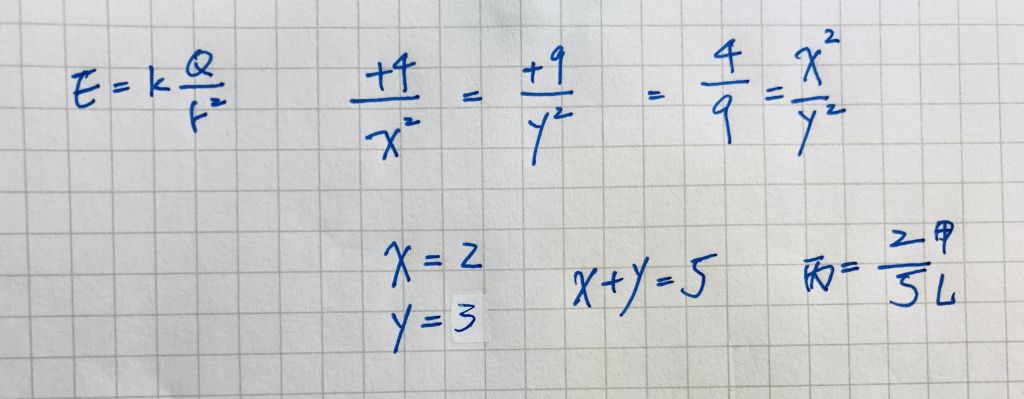 E = k Q/r² +4/x² = +9/y² = 4/9 = x²/y²
x = 2
y = 3
x+y=5
丙 = 2甲/5L